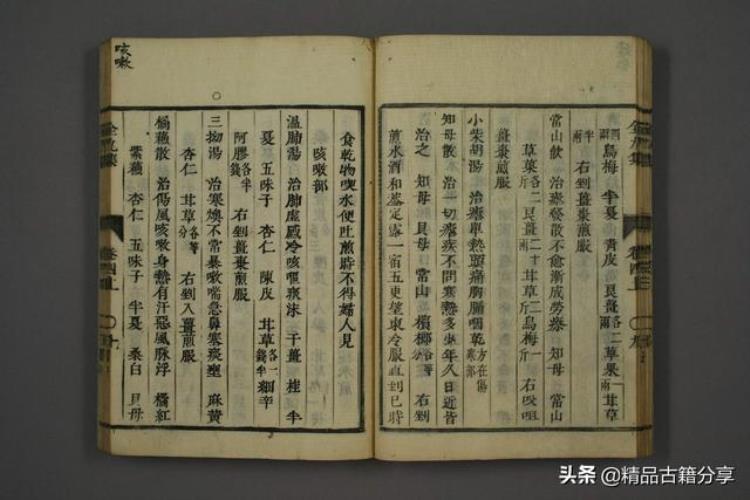 四兩 烏梅 半夏 青皮 良薑各二兩 草果一兩 甘草
半兩 右剉薑棗煎服
常山飲 治瘧發散不愈漸成勞瘵 知母 常山
草菓各二斤 良薑二十兩 甘草二斤 烏梅一斤 右㕮咀
薑棗煎服
小柴胡湯 治瘧單熱頭痛胸滿咽乾方在傷寒部
知母散 治一切瘧疾不問寒熱多少年久日近皆
治之 知母 貝母 常山 檳榔各等 右剉
煎水酒和蓋定露一宿五更望東冷服直到巳時
食乾物喫水便吐煎時不得婦人見
咳嗽部
溫肺湯 治肺虛感冷咳嘔痰沫 干薑 桂 半
夏 五味子 杏仁 陳皮 甘草各一錢半 細辛
阿膠各半錢 右剉薑棗煎服
三拗湯 治寒燠不常暴嗽喘急鼻塞痰壅 麻黃
杏仁 甘草各等分 右剉入薑煎服
橘蘓散 治傷風咳嗽身熱有汗惡風脉浮 橘紅
紫蘓 杏仁 五味子 半夏 桑白 貝母
咳嗽
卷四上
頭条 @精品古籍分享